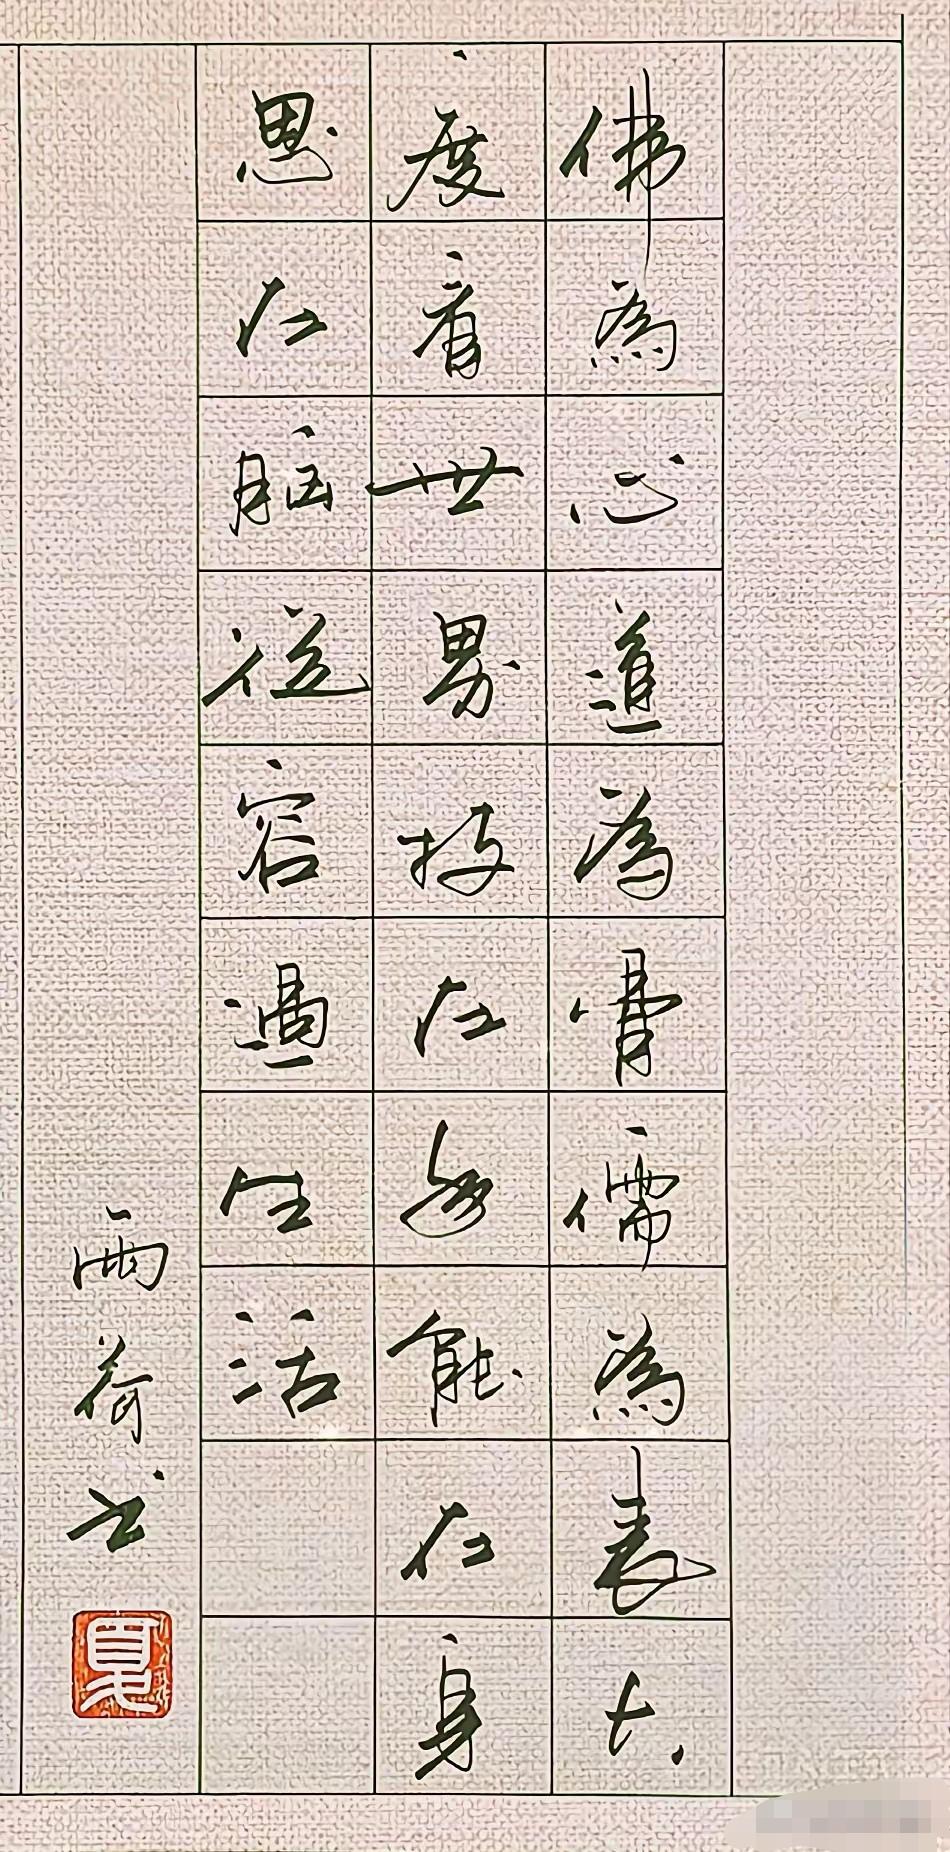 佛為心道為骨儒為表大
度看世界技在手能在身
思在脑從容過生活
雨荷书
夏